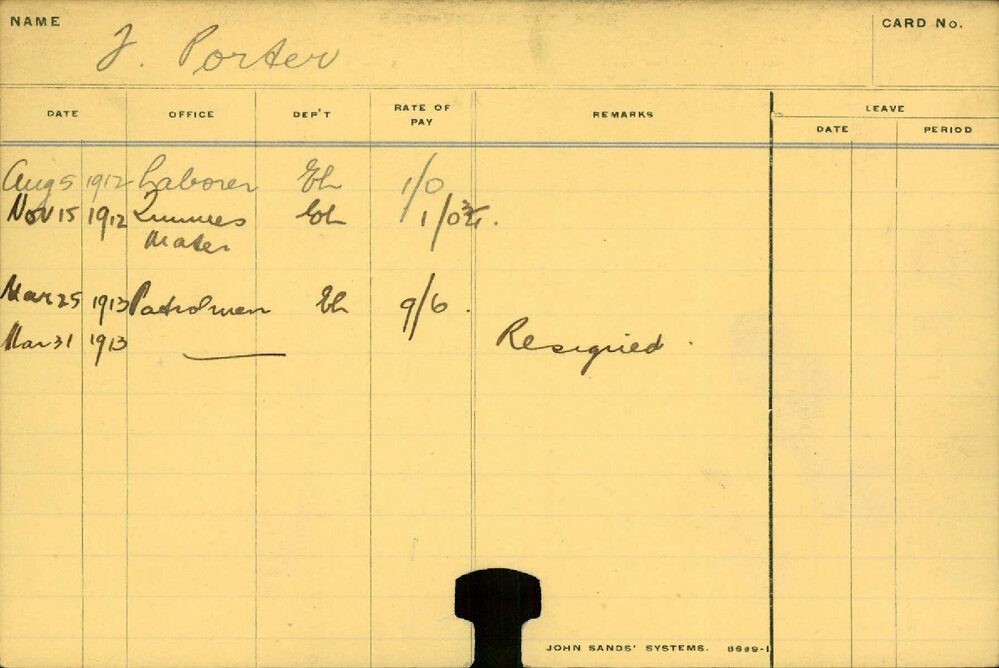 NAME
CARD No.
J. Porter
LEAVE
DATE OFFICE DEP'T RATE OF PAY REMARKS DATE PERIOD
Aug 5 1912 Laborer El 1/0
Nov 15 1912 El 1/0¾.
Mates
Mar 25 1913 Patrolman El 9/6.
Mar 31 1913 Resigned.
JOHN SANDS' SYSTEMS. 8689-1